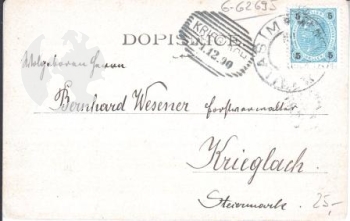 6-62695
DOPISNICE
12.90
5 5
Wolgeboren Herrn
Bernhard Wesener Forstverwalter
Krieglach.
Steiermark.
25,-